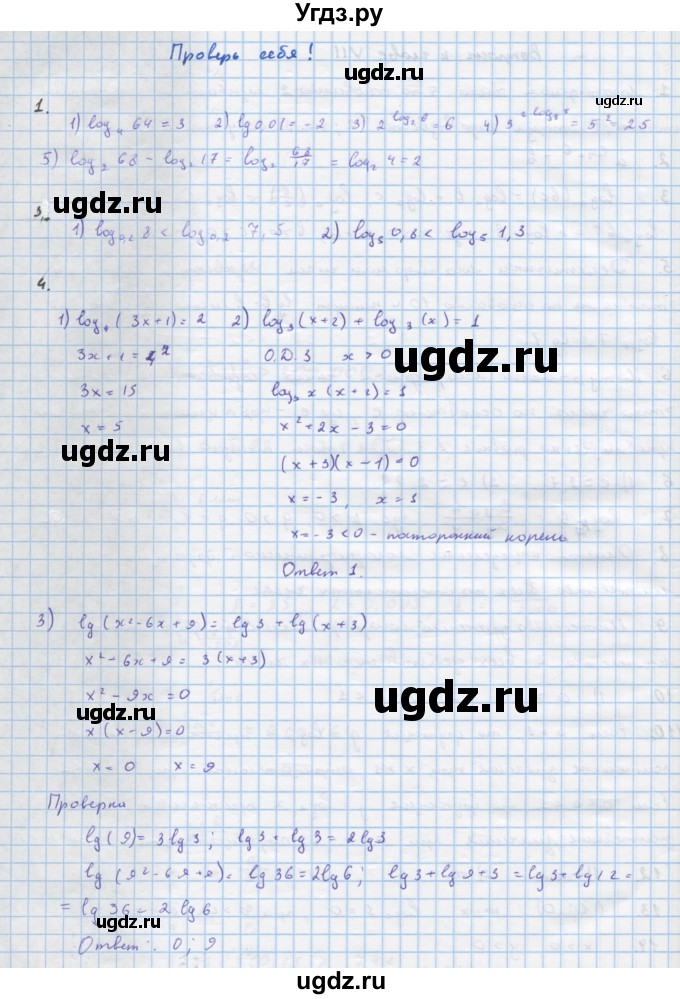 Угдз.ру
Проверь себя!
1.
1) log₄ 64 = 3 2) lg 0,01 = -2 3) 2^(log₂ 6) = 6 4) 3^(2 log₃ 5) = 5² = 25
5) log₂ 68 - log₂ 17 = log₂ 68/17 = log₂ 4 = 2
ugdz.ru
3.
1) log₀,₂ 8 < log₀,₂ 7,5 2) log₅ 0,8 < log₅ 1,3
4.
1) log₄ (3x+1) = 2 2) log₃(x+2) + log₃(x) = 1
3x+1 = 4² О.Д.З x > 0
ugdz.ru
3x = 15 log₃ x(x+2) = 1
x = 5 x² + 2x - 3 = 0
ugdz.ru
(x+3)(x-1) = 0
x = -3, x = 1
x = -3 < 0 - посторонний корень
Ответ 1.
3) lg(x²-6x+9) = lg3 + lg(x+3)
x² - 6x + 9 = 3(x+3)
x² - 9x = 0
ugdz.ru
ugdz.ru
x(x-9) = 0
x = 0 x = 9
Проверка
lg(9) = 3lg3; lg3 + lg3 = 2lg3
ugdz.ru
lg(9²-6·9+9) = lg36 = 2lg6; lg3 + lg9+3 = lg3 + lg12 =
= lg36 = 2lg6
ugdz.ru
Ответ: 0; 9
ugdz.ru